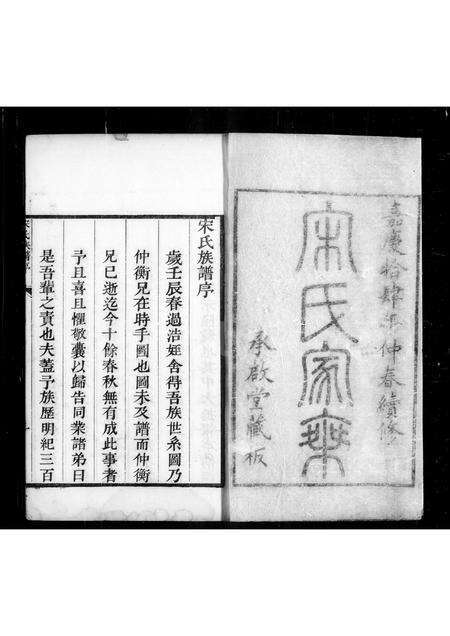 嘉慶拾肆年仲春續修
宋氏家乘
承啟堂藏板
宋氏族譜序
歲壬辰春過浩姪舍得吾族世系圖乃
仲衡兄在時手國也圖未及譜而仲衡
兄已逝迄今十餘春秋無有成此事者
予且喜且懼敬囊以歸告同業諸弟曰
是吾輩之責也夫蓋予族歷明紀三百
宋氏族譜序